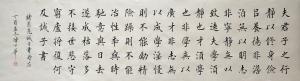 夫君子之行
靜以修身儉
以養德非澹
泊無以明志
非寧靜無以
致遠夫學須
靜也才須學
也非學無以
廣才非志無
以成學慆慢
則不能勵精
險躁則不能
冶性年與時
馳意與日去
遂成枯落多
不接世悲守
窮廬將復何
及誡子書
諸葛亮誡子書
丁酉年